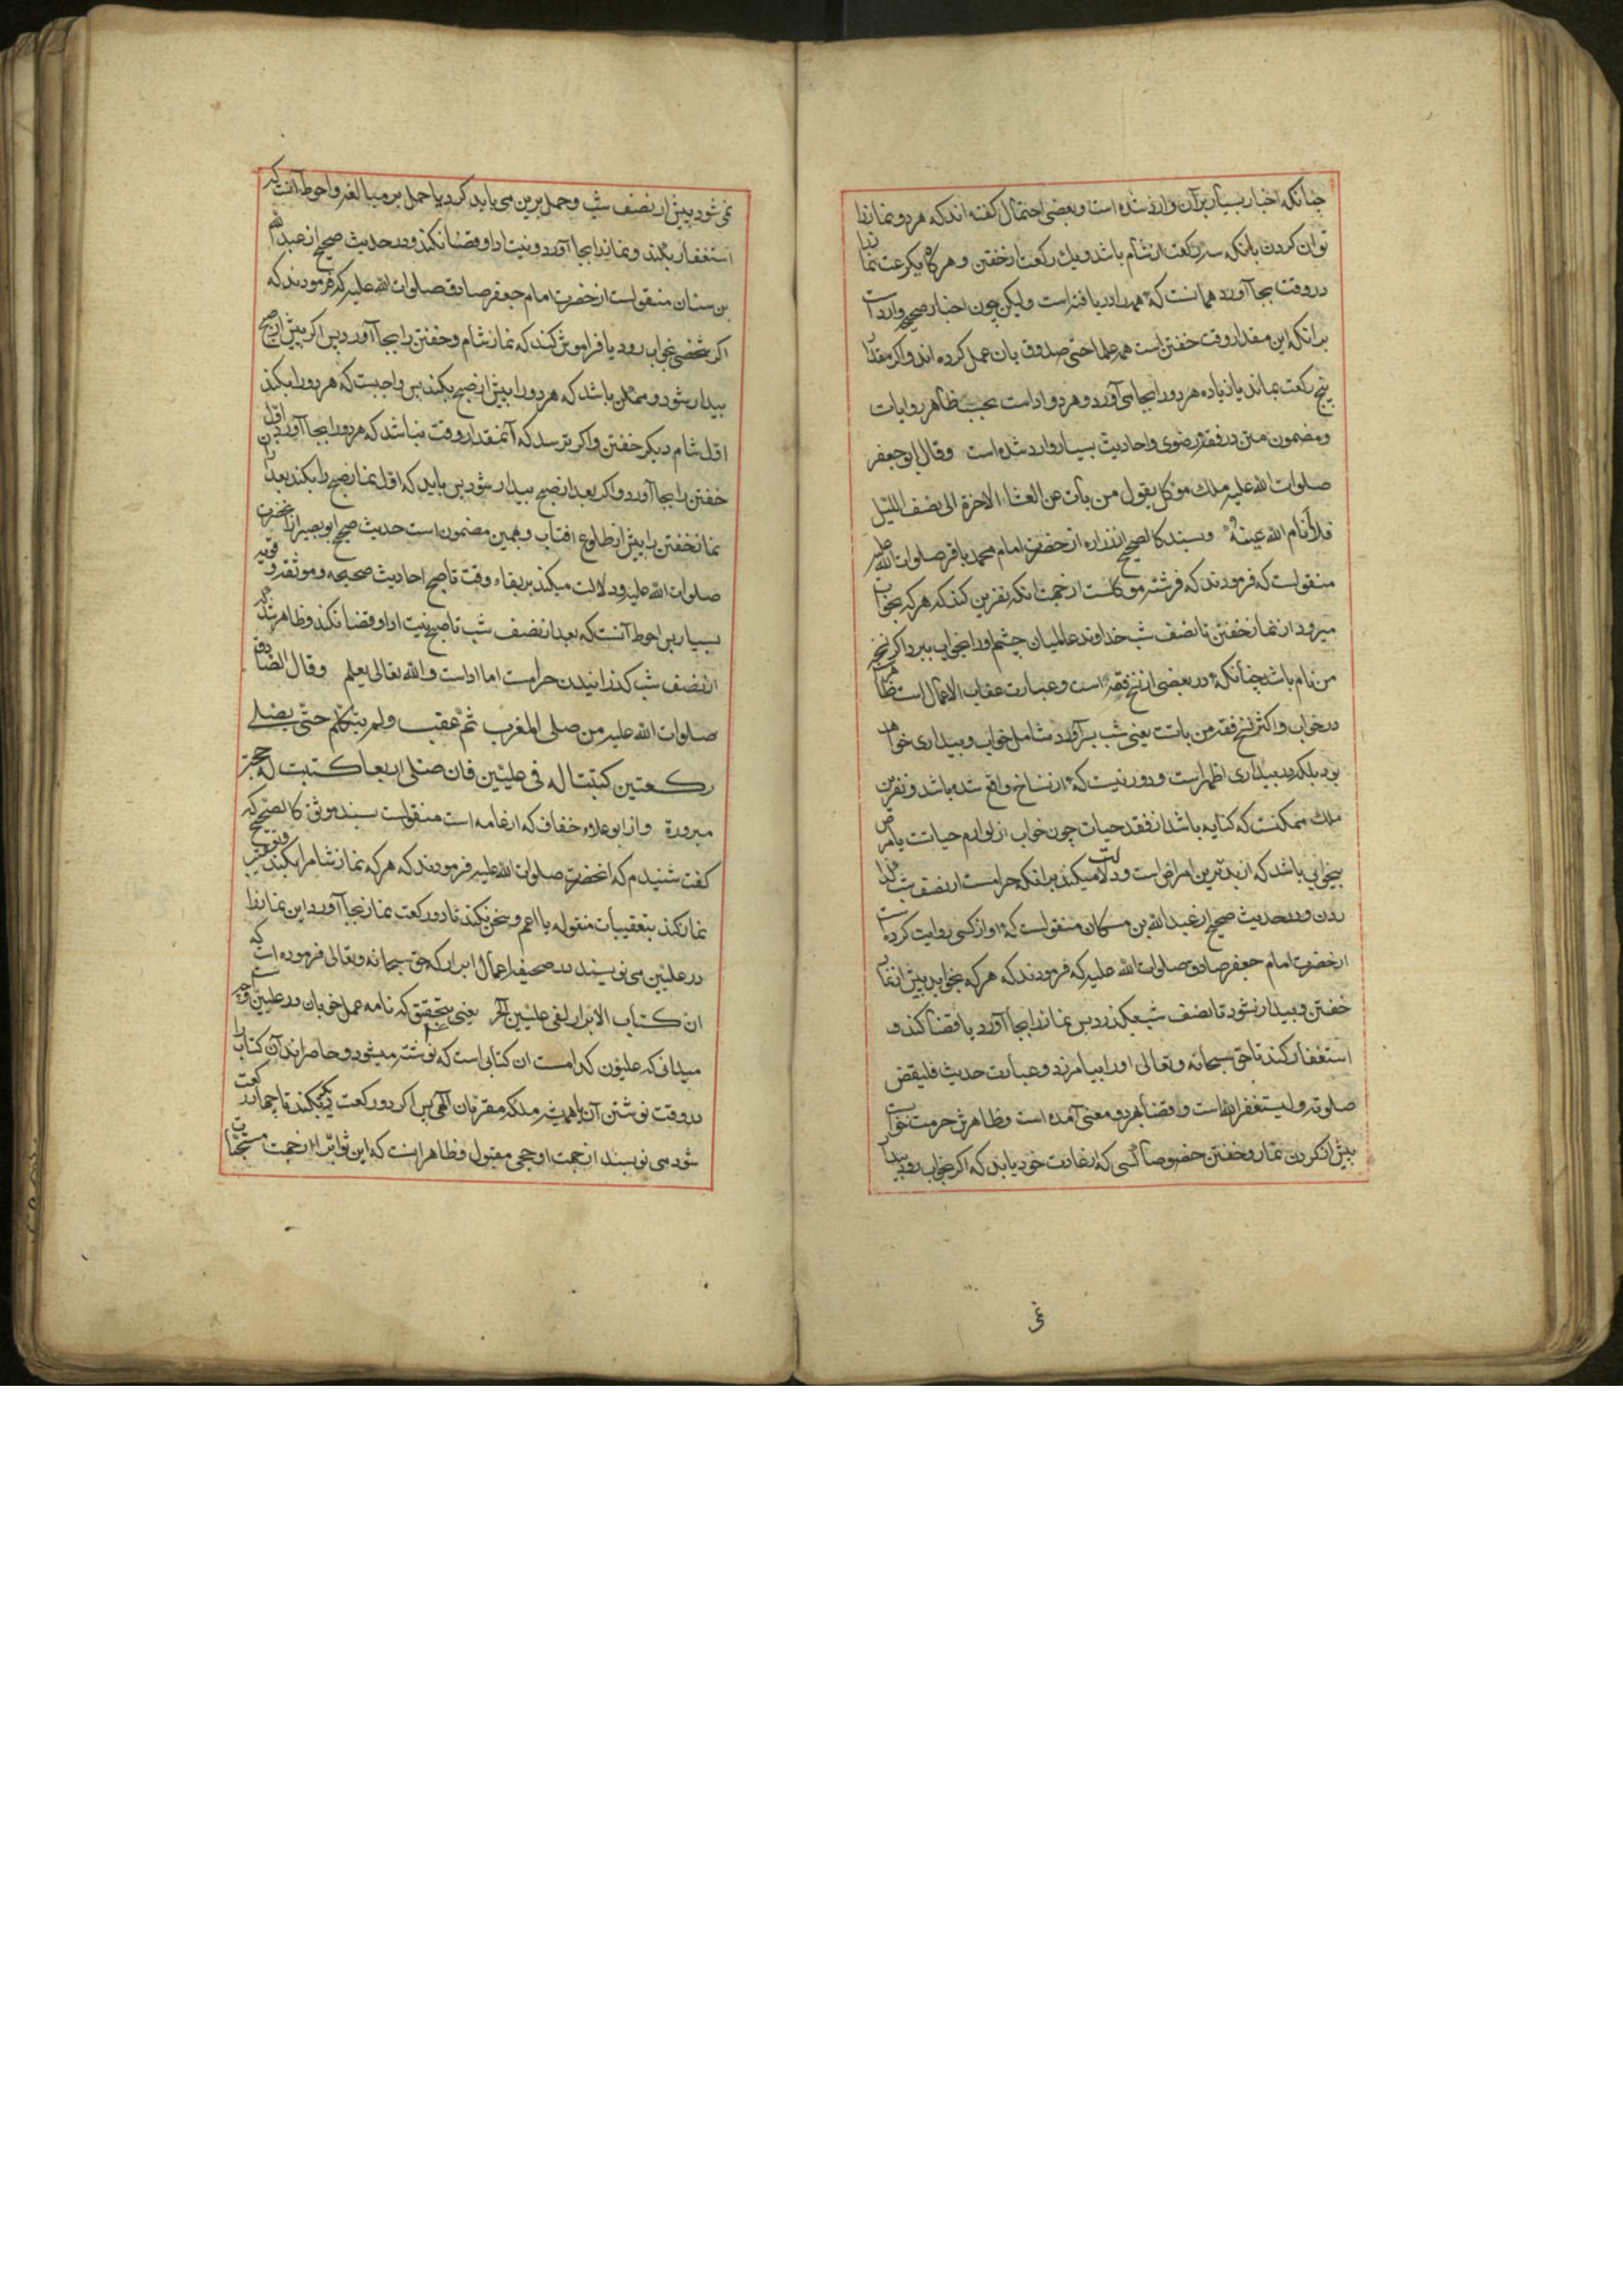 چنانکه اخبار بسیار بر آن وارد شده است و بعضی احتمال کفته اند که هر دو نماز را
توان کردن بانکه سه رکعت از شام باشد و یک رکعت از خفتن و هرکاه یکرکعت نماز را
در وقت بجا آورد همانست که همه را دریافته است ولیکن چون اخبار صحیحه وارد است
برانکه این مقدار وقت خفتن است همه علما حتی صدوق بان عمل کرده اند و اکر مقدار
پنج رکعت بماند یا زیاده هر دو را بجا می آورد و هر دو اداست بحسب ظاهر روایات
و مضمون متن در فقه رضوی و احادیث بسیار وارد شده است وقال ابو جعفر
صلوات الله علیه ملک موکل یقول من بات عن العشاء الاخرة الی نصف اللیل
فلا أنام الله عینه و بسند کالصحیح از زراره از حضرت امام محمد باقر صلوات الله علیه
منقولست که فرمودند که فرشته موکلست از جهت انکه نفرین کند که هر که بخواب
میرود از نماز خفتن تا نصف شب خداوند عالمیان چشم او را بخواب نبرد اکر نسخه
من نام باشد چنانکه در بعضی از نسخ فقیه است و عبارت عقاب الاعمال است ظاهر
در خواب و اکثر نسخ فقیه من باتست یعنی شب برآورد شامل خواب و بیداری خواهد
بود بلکه در بیداری اظهر است و دور نیست که از نساخ واقع شده باشد و نفرین
ملک ممکنست که کنایه باشد از فقد حیات چون خواب از لوازم حیاتست یا مرض
بیخوابی باشد که از بدترین امراض است و دلالت میکند برانکه حرامست از نصف شب کذرا
ندن و در حدیث صحیح از عبد الله بن مسکان منقولست که او از کسی روایت کرده است
از حضرت امام جعفر صادق صلوات الله علیه که فرمودند که هر که بخوابد پیش از نماز
خفتن و بیدار نشود تا نصف شب بکذرد پس نماز را بجا آورد یا قضا کند و
استغفار کند تا حق سبحانه و تعالی او را بیامرزد و عبارت حدیث فلیقض
صلوته ولیستغفر الله است و قضا بهر دو معنی آمده است و ظاهرش حرمت خواب
پیش از کردن نماز و خفتن خصوصا کسی که از عادت خود یابد که اکر بخواب رود بیدار
نمی شود پیش از نصف شب و حمل برین می باید کرد یا حمل بر مبالغه و احوط آنست که
استغفار بکند و نماز را بجا آورد و نیت ادا و قضا نکند و در حدیث صحیح از عبد الله
بن سنان منقولست از حضرت امام جعفر صادق صلوات الله علیه که فرمودند که
اکر شخصی بخواب رود یا فراموش کند که نماز شام و خفتن را بجا آورد پس اکر پیش از صبح
بیدار شود و ممکن باشد که هر دو را پیش از صبح بکند پس واجبست که هر دو را بکند
اول شام دیکر خفتن و اکر ترسد که آنمقدار وقت نباشد که هر دو را بجا آورد اول
خفتن را بجا آورد و اکر بعد از صبح بیدار شود پس باید که اول نماز صبح را بکند بعد از آن
نماز خفتن را پیش از طلوع افتاب و بهمین مضمون است حدیث صحیح ابو بصیر از آنحضرت
صلوات الله علیه و دلالت میکند بر بقاء وقت تا صبح احادیث صحیحه و موثقه و قویه
بسیار پس احوط آنست که بعد از نصف شب تا صبح نیت ادا و قضا نکند و ظاهر شد که
از نصف شب کذرانیدن حرامست اما اداست و الله تعالی یعلم وقال الصادق
صلوات الله علیه من صلی المغرب ثم عقب ولم یتکلم حتی یصلی
رکعتین کتبتا له فی علیین فان صلی اربعا کتبت له حجة
مبرورة و از ابو علاء خفاف که از عامه است منقولست بسند موثق کالصحیح که
کفت شنیدم که انحضرت صلوات الله علیه فرمودند که هر که نماز شام را بکند و تعقیب
نماز بکند بتعقیبات منقوله یا اعم و سخن نکند تا دو رکعت نماز بجا آورد این نماز را
در علیین می نویسند در صحیفه اعمال ابرار که حق سبحانه و تعالی فرموده است که
ان کتاب الابرار لفی علیین الخ یعنی بتحقیق که نامه عمل خوبان در علیین است
میدانی که علیون کدامست ان کتابی است که نوشته میشود و حاضر اند آن کتاب را
در وقت نوشتن آن یا همیشه ملائکه مقربان الهی پس اکر دو رکعت دیکر بکند تا چهار رکعت
شود می نویسند از جهت او حجی مقبول و ظاهر انست که این ثواب از جهت